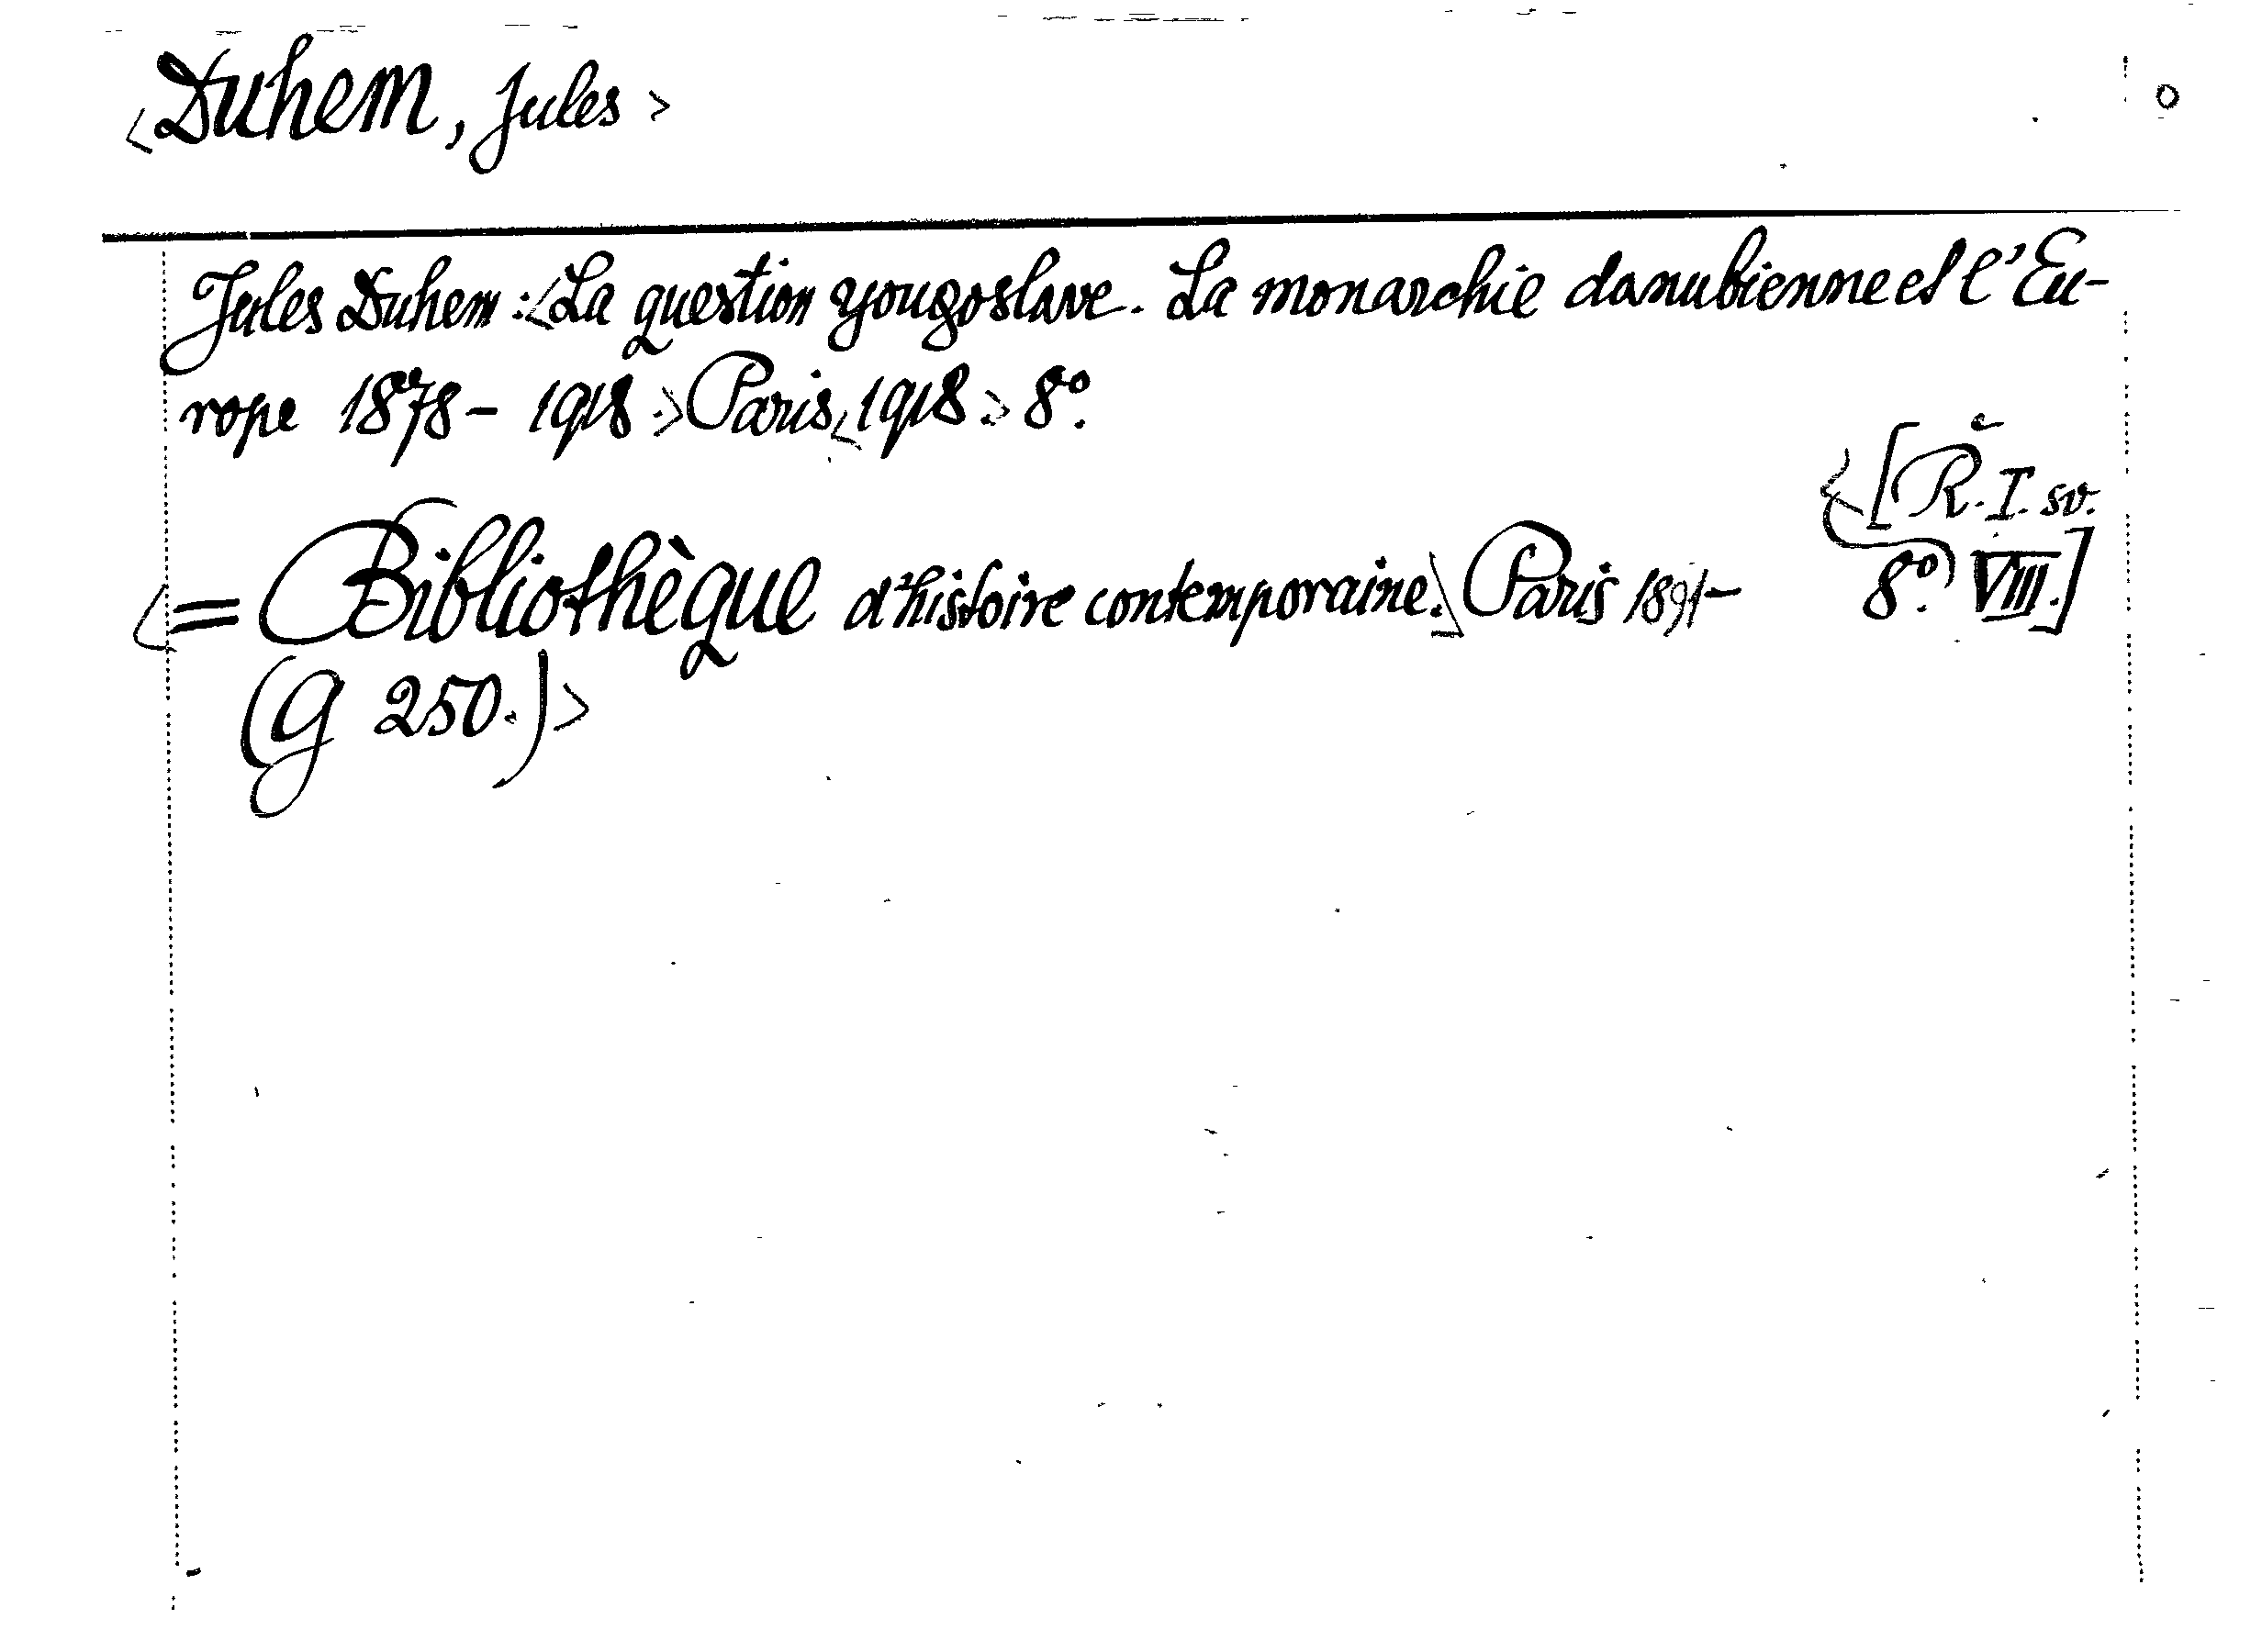 <Duhem, Jules>
Jules Duhem:<La question yougoslave. La monarchie danubienne et l'Eu-
rope 1878-1918.>Paris,<1918.>8º.
<[Ř. I. sv.
<=Bibliothèque d'histoire contemporaine.> Paris 1891- 8º. VIII.]
(G 250.)>